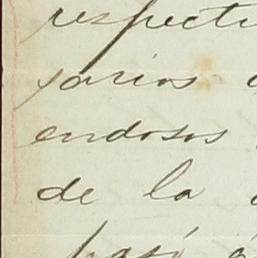 respecti
sarios
endosos
de la
pasó á